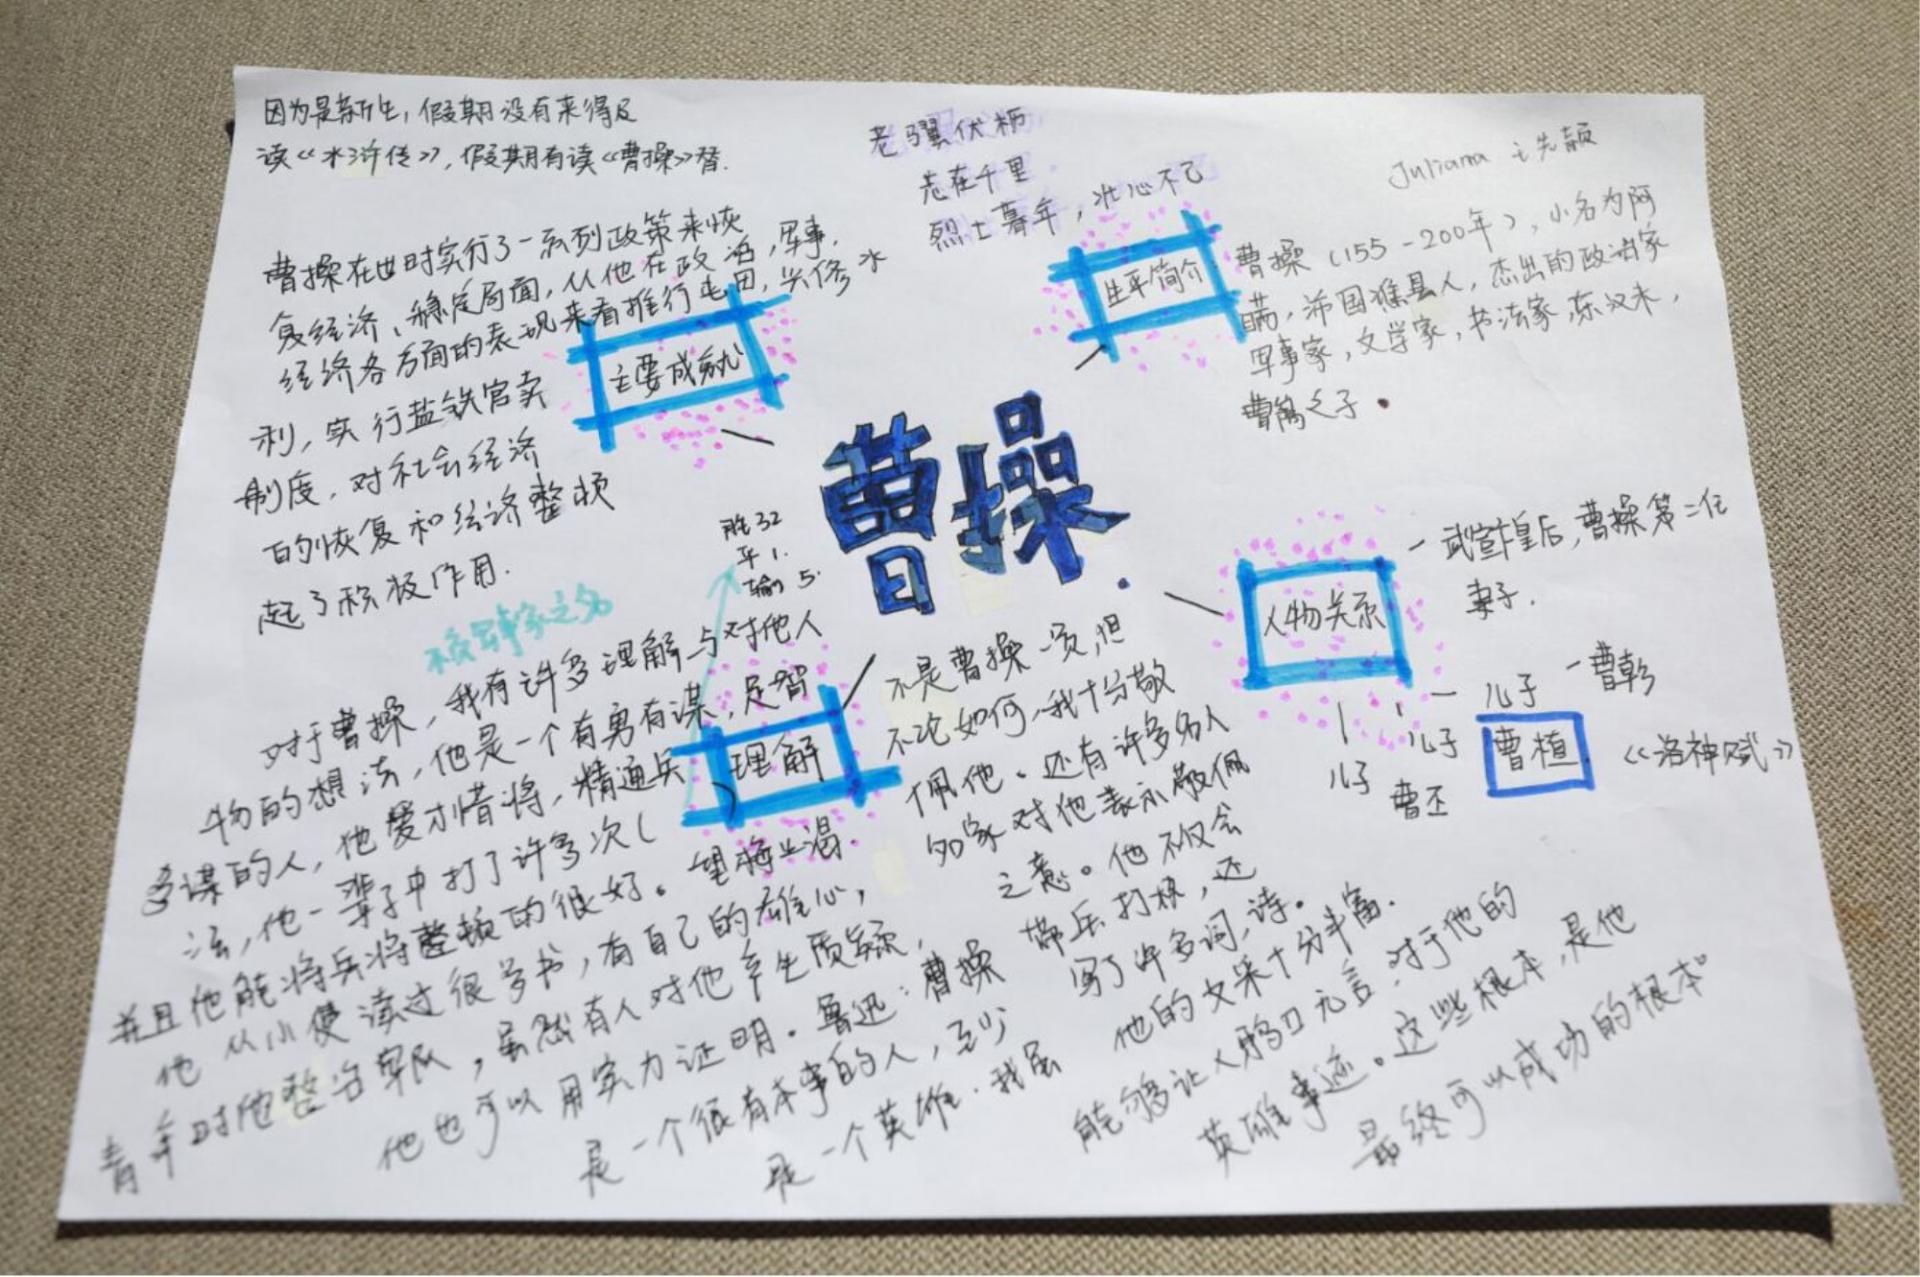 因为是新生，假期没有来得及
读《水浒传》，假期有读《曹操》替.
老骥伏枥
志在千里
烈士暮年，壮心不已
Juliana 王先颖
曹操在世时实行了一系列政策来恢
复经济、稳定局面，从他在政治，军事，
经济各方面的表现来看推行屯田，兴修水
利，实行盐铁官卖
制度，对社会经济
的恢复和经济整顿
起了积极作用.
主要成就
生平简介
曹操（155-200年），小名为阿
瞒，沛国谯县人，杰出的政治家
军事家，文学家，书法家，东汉末，
曹嵩之子.
曹操
胜32
平1.
输5.
人物关系
一武宣皇后，曹操第二任
妻子.
一儿子一曹乾
儿子 曹植 《洛神赋》
儿子 曹丕
不负军事家之名
理解
对于曹操，我有许多理解与对他人
物的想法，他是一个有勇有谋，足智
多谋的人，他爱才惜将，精通兵
法，他一辈子中打了许多次（ ）
并且他能将兵将整顿的很好。望梅止渴
他从小便读过很多书，有自己的雄心，
青年时他整治军队，虽然有人对他产生质疑，
他也可以用实力证明。鲁迅：曹操
是一个很有本事的人，至少
是一个英雄.我虽
不是曹操一党，但
不论如何，我十分敬
佩他。还有许多名人
名家对他表示敬佩
之意。他不仅会
带兵打杖，还
写了许多词，诗。
他的文采十分丰富.
能够让人鸦口无言.对于他的
英雄事迹。这些根本，是他
最终可以成功的根本。